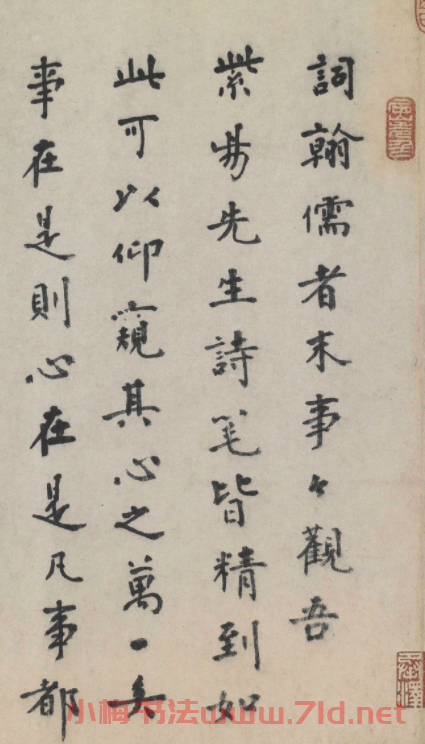 詞翰儒者末事々觀吾
紫昜先生詩笔皆精到如
此可以仰窺其心之萬一矣
事在是則心在是凡事都
小梅书法www.7ld.net